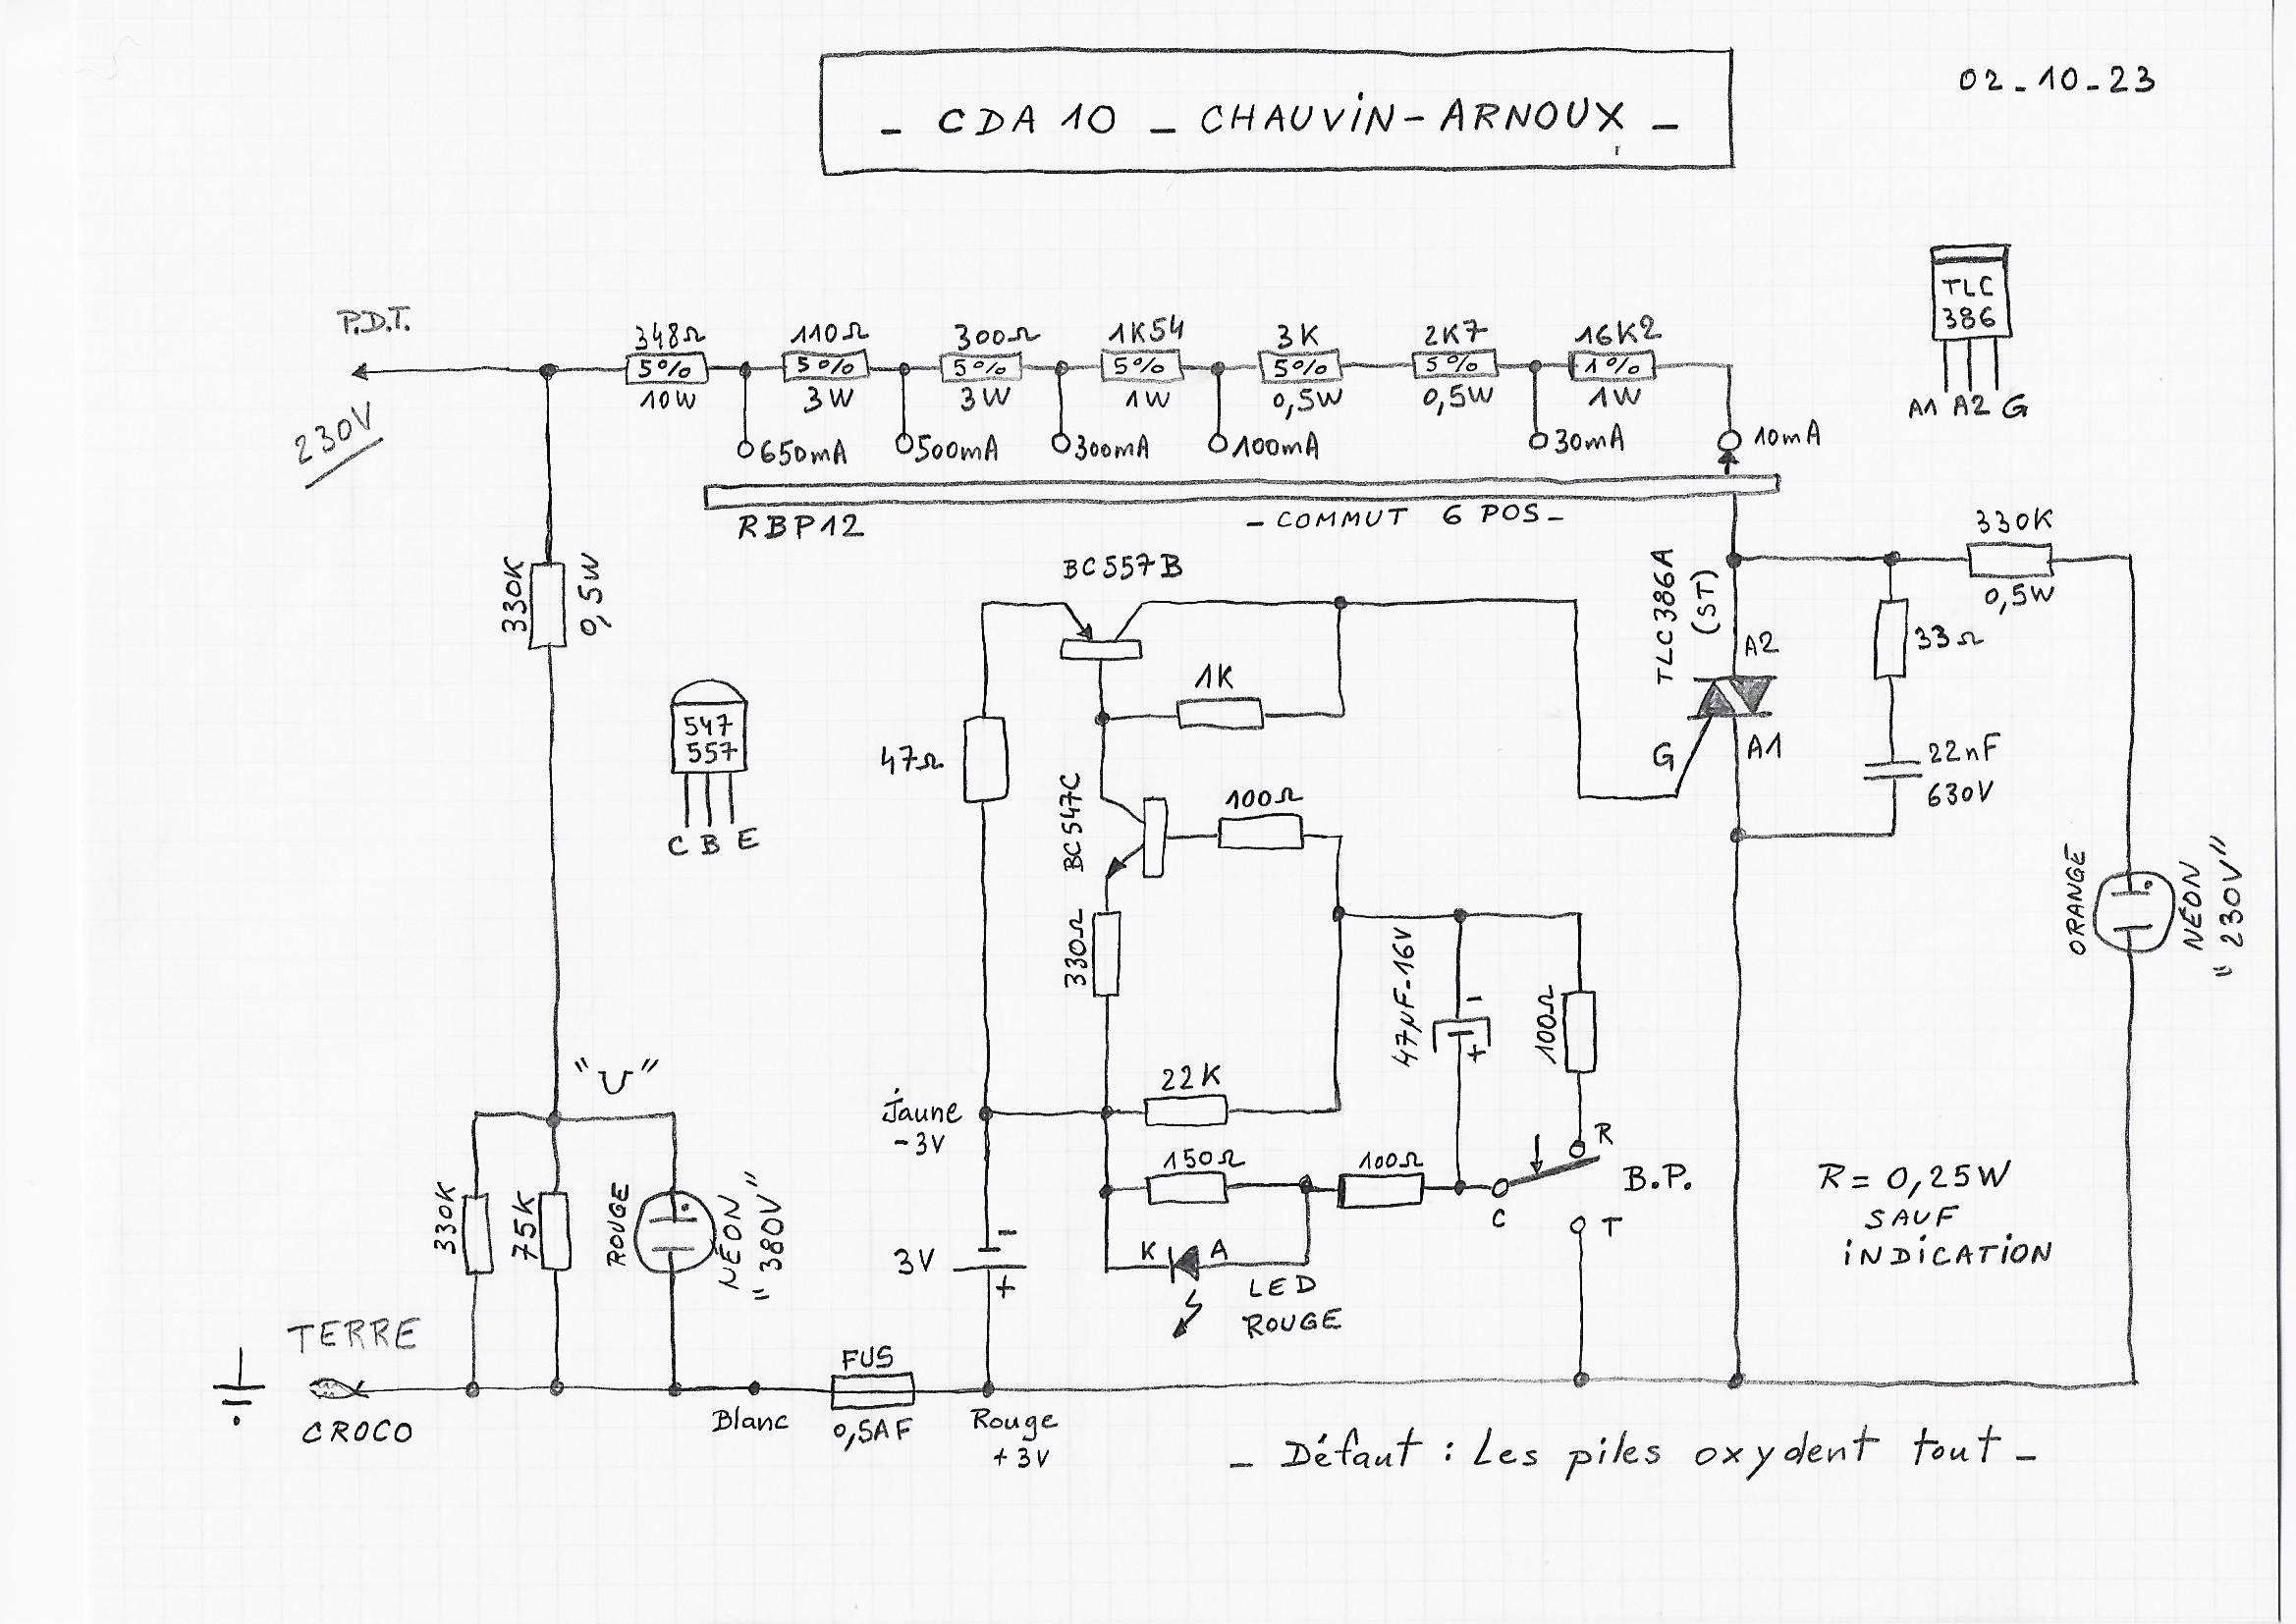 02-10-23
- CDA 10 - CHAUVIN-ARNOUX -
TLC
386
A1 A2 G
P.D.T.
230V
348Ω 110Ω 300Ω 1K54 3K 2K7 16K2
5% 5% 5% 5% 5% 5% 1%
10W 3W 3W 1W 0,5W 0,5W 1W
650mA 500mA 300mA 100mA 30mA 10mA
RBP12
- COMMUT 6 POS -
330K
0,5W
330K
0,5W
BC557B
TLC386A
(ST)
A2
A1
G
33Ω
22nF
630V
1K
47Ω
547
557
C B E
BC547C
100Ω
330Ω
ORANGE
NÉON
"230V"
47µF-16V
-
+
100Ω
"U"
Jaune
-3V
22K
150Ω
100Ω
R
C
T
B.P.
R = 0,25W
SAUF
INDICATION
330K
75K
ROUGE
NÉON
"380V"
3V
-
+
K A
LED
ROUGE
TERRE
CROCO
Blanc
FUS
0,5AF
Rouge
+3V
- Défaut : Les piles oxydent tout -